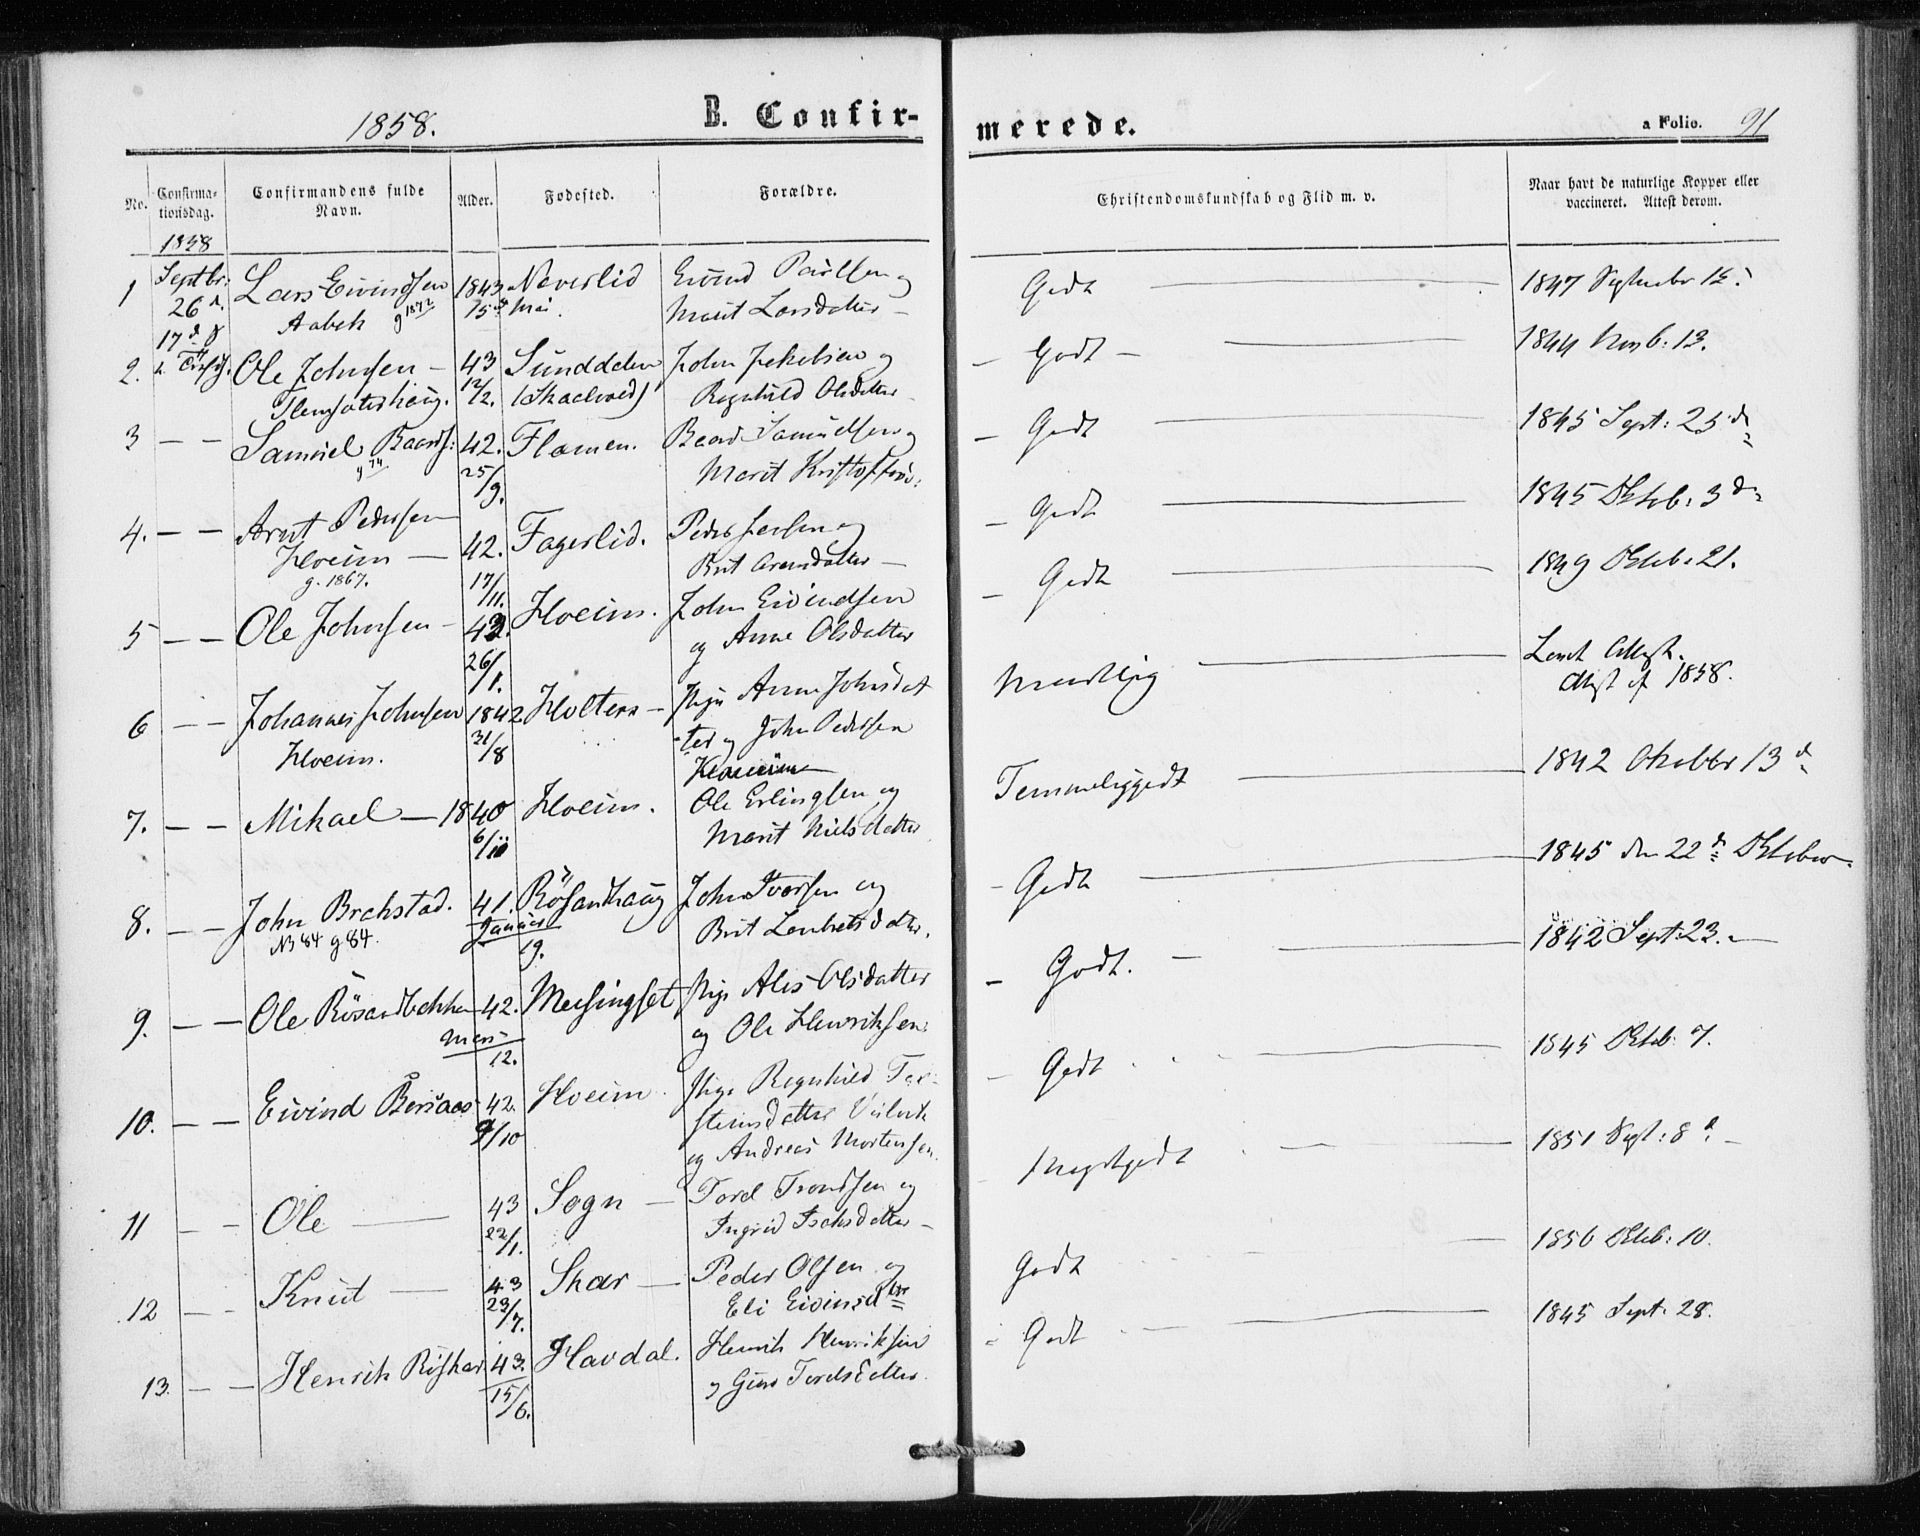 1858. B. Confirmerede. a Folio. 91
No. Confirmationsdag. Confirmandens fulde Navn. Alder. Fødested. Forældre. Christendomskundskab og Flid m. v. Naar havt de naturlige Kopper eller vaccineret. Attest derom.
1858
1 Septbr: 26 d. Lars Eivindsen 1843 Neverlid Eivind Paulsen og Godt 1847 September 15.
17 d. Aabek g 1872 15 de Mai. Marit Larsdatter –
2. Ole Johnsen – 43 Sunddalen John og – Godt – 1844 Novb: 13.
12/2. Ragnhild Olsdatter –
3 – – Samuel Baards: 42. Flamen. Baard Samuelsen og – Godt 1845 Sept: 25 d.
g 74 25/9. Marit
4. – – Arnt Pedersen 42. Fagerlid. Peder og – Godt 1845 Oktob: 3 d.
Hoeim – 17/11. Brit –
g. 1867.
5 – – Ole Johnsen – 43. Hoeim. John Eivindsen – Godt 1849 Oktob: 21.
26/1. og Anne Olsdatter
6 – – Johannes Johnsen 1842 Holten – Anne Johnsdat Attest.
Hoeim. 31/8 ter og John Pedersen 1858.
7. – – Mikael – 1840 Hoeim. Ole Erlingsen og Temmelig godt 1842 Oktobr 13 d.
6/10 Marit Nielsdatter
8. – – John Brekstad. 41. Røsandhaug John Iversen og – Godt 1845 den 22 d. Oktober.
N 84 g 84. Januar 19. Brit
9. – – Ole Røsandbekken 42. Meisingset Pige Ales Olsdatter – Godt. – 1842 Sept: 23.
Mars 12. og Ole Henriksen.
10. – – Eivind 42. Hoeim. Pige Ragnhild Tor- – Godt 1845 Oktob: 7.
9/10 steinsdatter
og Andreas Mortensen.
11 – – Ole 43 Sogn – Tord Trondsen og Meget godt 1851 Sept: 8 d. –
22/1. Ingrid –
12 – – Knut 43 Skar – Peder Olsen og Godt 1856 Oktob: 10.
23/7. Eli Eivindsdtr
13. – – Henrik Røskar 43. Havdal. Henrik Henriksen Godt 1845 Sept: 28.
15/6. og Guro Tordsdatter.